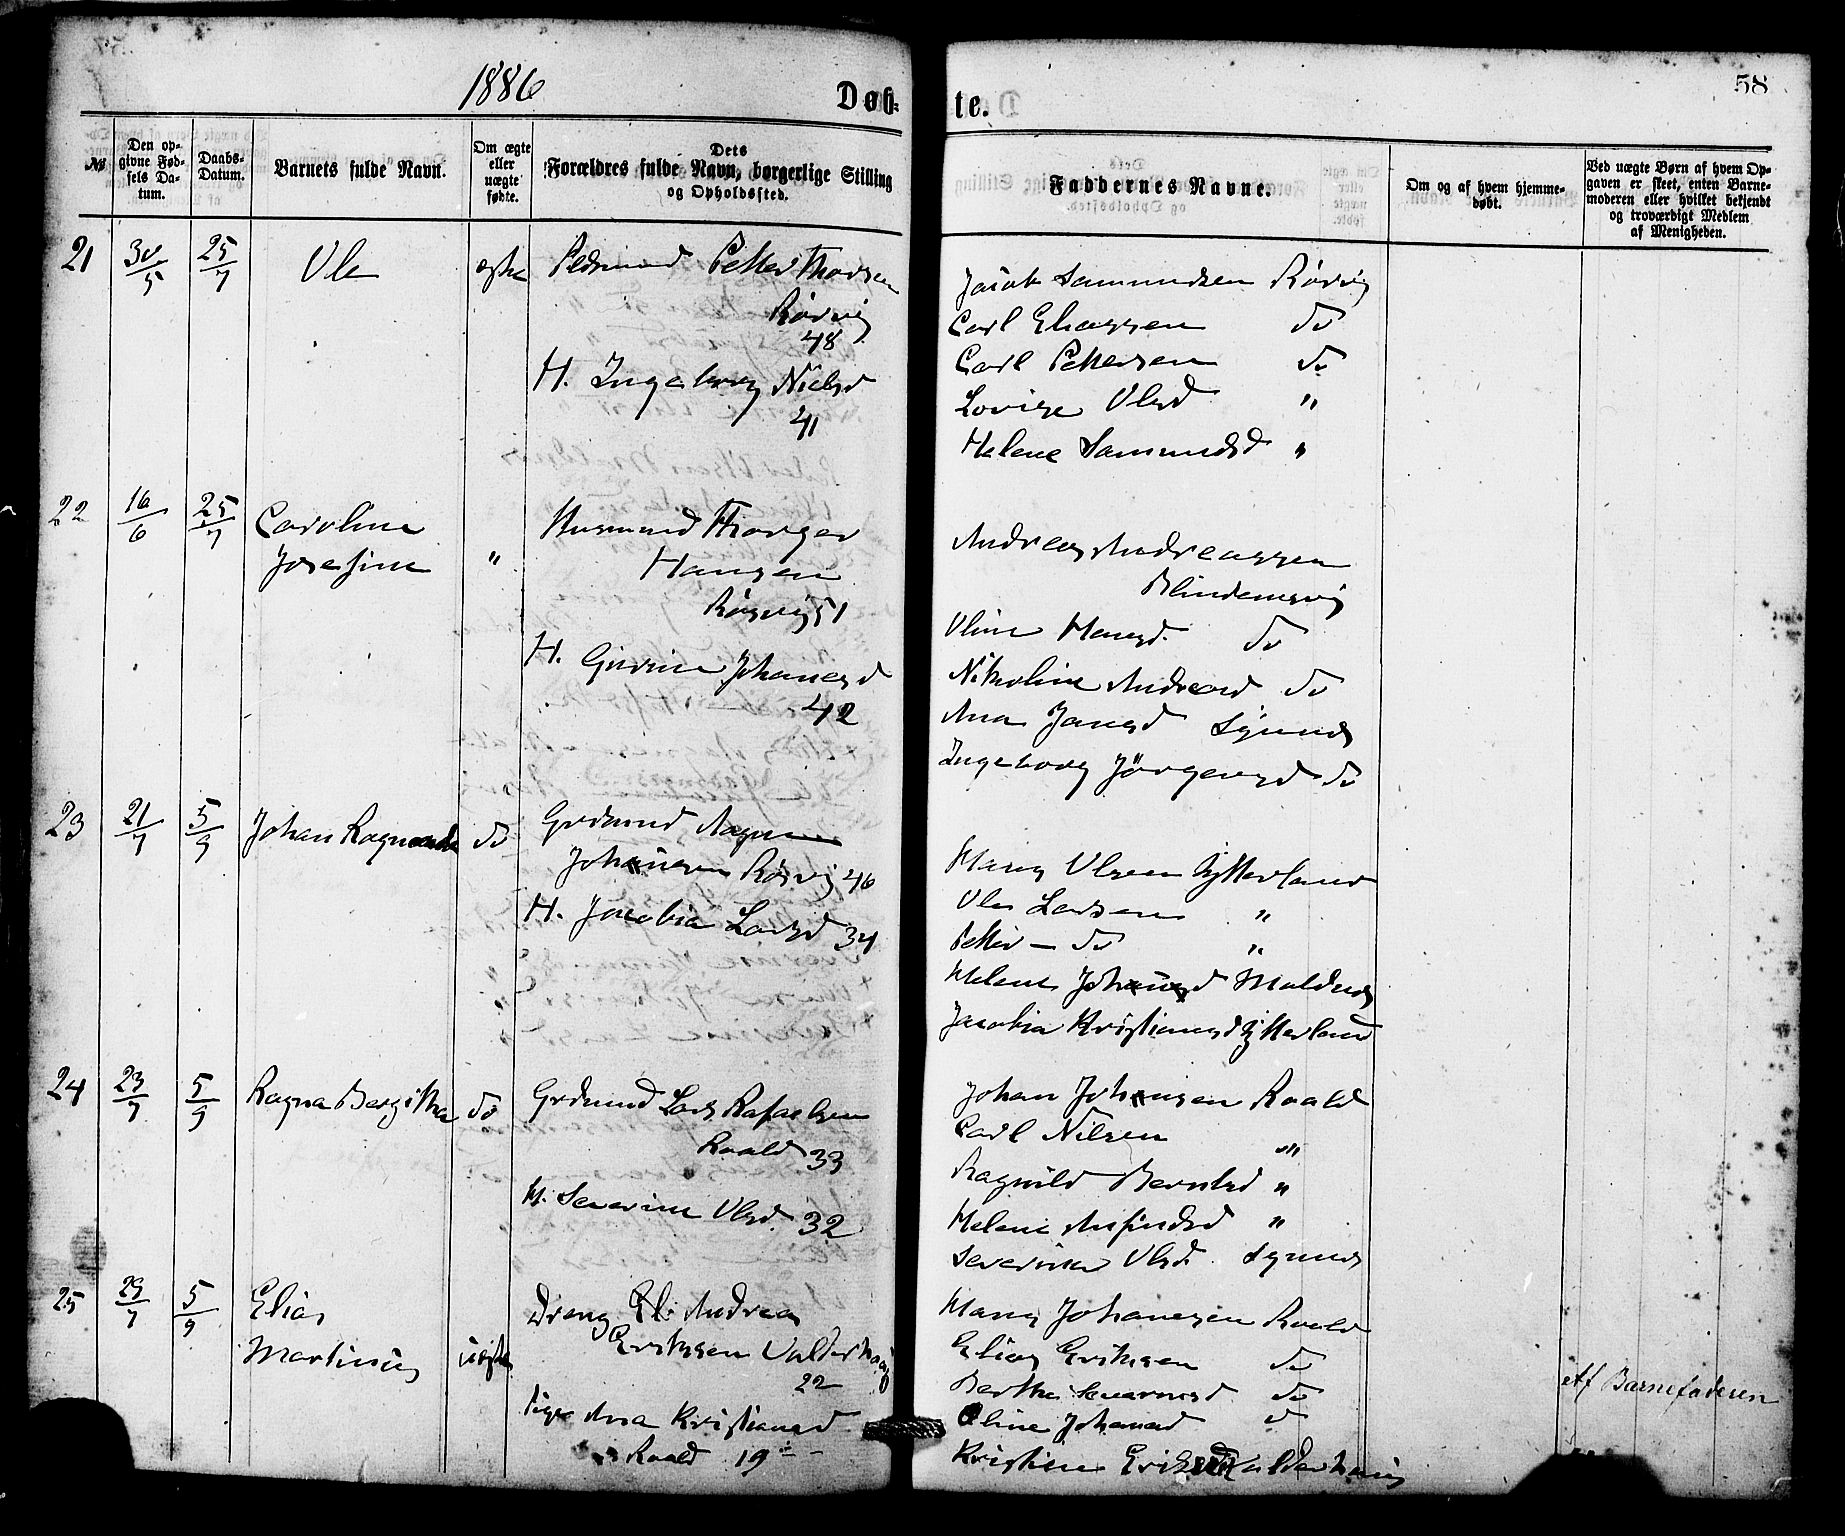 1886
Døb-
te.
58
№
Den op-
givne Fød-
sels Da-
tum.
Daabs-
Datum.
Barnets fulde Navn.
Om ægte
eller
uægte
fødte.
Dets
Forældres fulde Navn, borgerlige Stilling
og Opholdssted.
Faddernes Navne.
Om og af hvem hjemme-
døbt.
Ved uægte Børn af hvem Op-
gaven er skeet, enten Barne-
moderen eller hvilket bekjendt
og troværdigt Medlem
af Menigheden.
21 30/5 25/7 Ole ægte Petter Thorsen
Rørvig
48
H. Ingeborg Nielsd
41
Jacob Samundsen Rørvig
Carl Eliassen do
Carl Pettersen do
Lovise Olsd "
Helene Samundsd "
22 16/6 25/7 Caroline
Josefine "
Husmand Thorger
Hansen
Rørvig 51
H. Gurine Johansd
42
Andreas Andreassen
Blindemsvig
Oline Hansd. do
Nikoline Andreasd do
Ana Jansd Synnes
Ingeborg Jørgensd do
23 21/7 5/9 Johan Ragnvald do
Grdmand
Johansen Rørvig 46
H. Jacobia Larsd 34
Hans Olsen Ytterland
Ole Larsen "
Petter — do "
Helene Johansd Moldnes
Jacobia Kristiansd Ytterland
24 23/7 5/9 Ragna Bergitha do
Grdmand Lars Rafaelsen
Roald 33
H. Severine Olsd. 32
Johan Johansen Roald
Carl Nilsen "
Ragnild Berntsd "
Helene Anfindsd "
Severine Olsd. Synnes
25 29/7 5/9 Elias
Martinus uægte
Dreng Andreas
Eriksen Valderhoug
22
Pige Ana Kristiansd
Roald 19
Hans Johansen Roald
Elias Eriksen do
Berthe do
Oline Johansd d
Kristine Eriksd Valderhoug
Af Barnefaderen